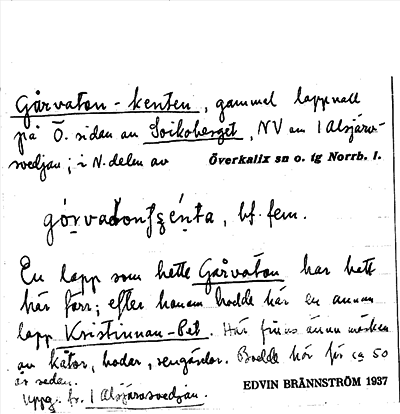 Gårvaton-kenten, gammel lappvall
på Ö. sidan av Soikoberget, NV om 1 Alsjärv-
svedjan; i N. delen av Överkalix sn o. tg Norrb. l.
bf. fem.
En lapp som hette Gårvaton har haft
här förr; efter honom bodde här en annan
lapp Kristinnan-Pet. Här finns ännu märken
av kåtor, hodar, rengärdor. Bodde här för ca 50
år sedan.
Uppg. fr. 1 Alsjärvsvedjan.
EDVIN BRÄNNSTRÖM 1937